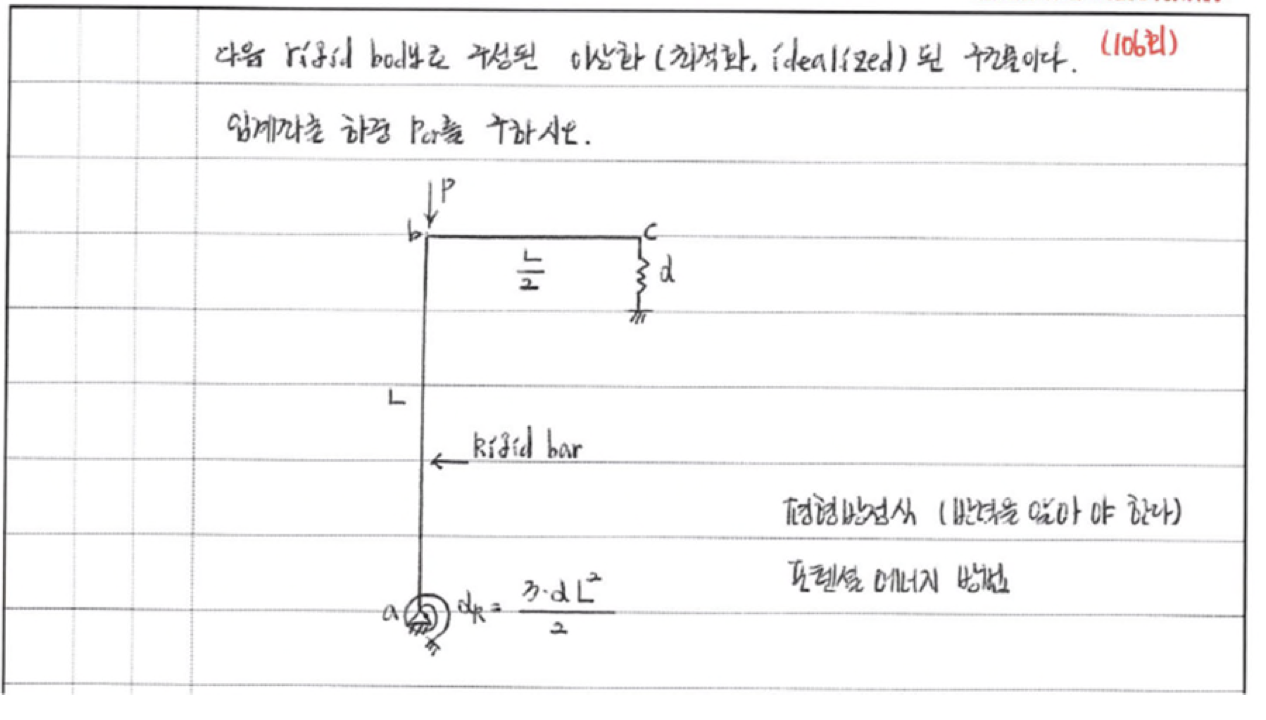 다음 rigid body로 구성된 이상화 (최적화, idealized) 된 구조물이다. (106회)
임계좌굴 하중 Pcr를 구하시오.
P
b
c
L/2
α
L
Rigid bar
평형방정식 (반력을 알아 야 한다)
포텐셜 에너지 방법
a
αR = 3·αL²/2